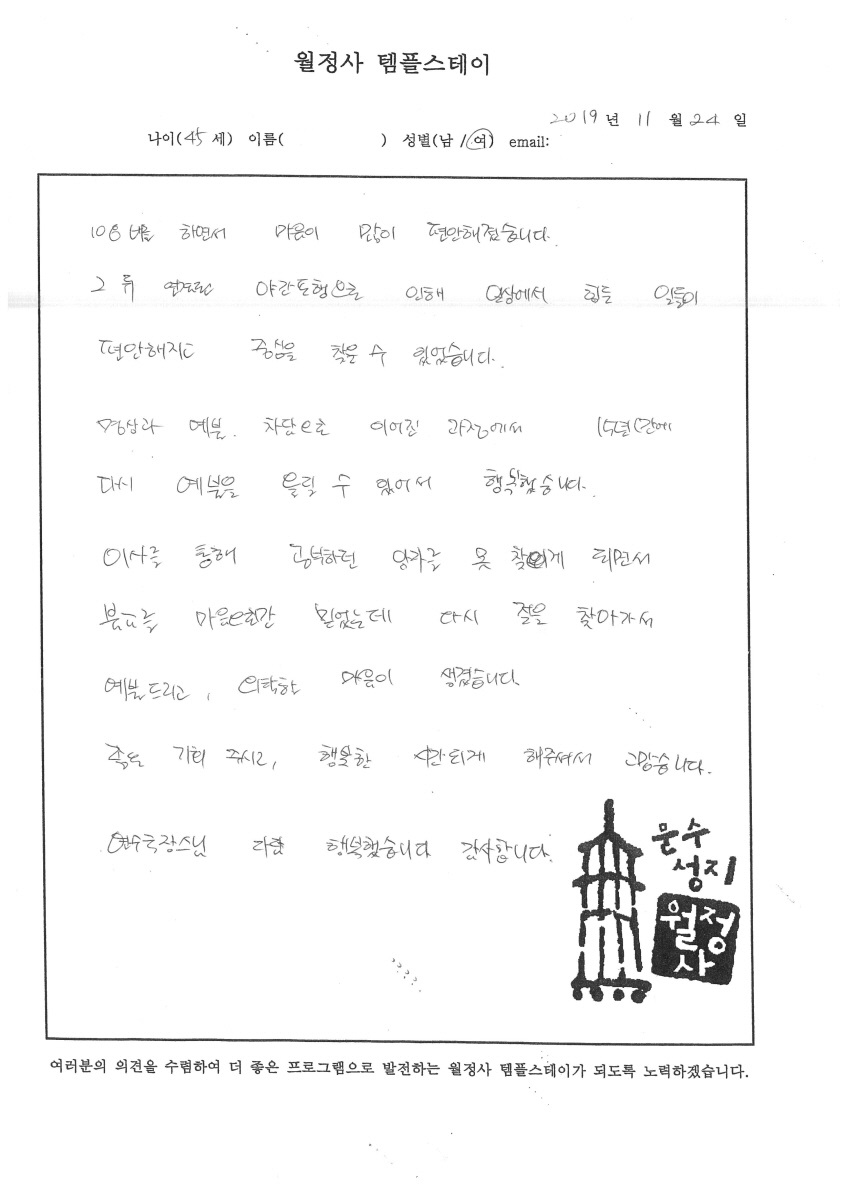 월정사 템플스테이
2019 년 11 월 24 일
나이(45 세) 이름( ) 성별(남 /여) email:
108배를 하면서 마음이 많이 편안해졌습니다.
그 후 야간포행으로 인해 일상에서 힘든 일들이
편안해지는 중심을 찾을 수 있었습니다.
명상과 예불. 차담으로 이어진 과정에서 15년만에
다시 예불을 올릴 수 있어서 행복했습니다.
이사를 통해 공부하던 못 찾게 되면서
불교를 마음으로만 믿었는데 다시 절을 찾아가서
예불드리고, 의탁할 마음이 생겼습니다.
좋은 기회 주시고, 행복한 해주셔서 고맙습니다.
연수국장스님 행복했습니다 감사합니다.
문수
성지
월정
사
여러분의 의견을 수렴하여 더 좋은 프로그램으로 발전하는 월정사 템플스테이가 되도록 노력하겠습니다.